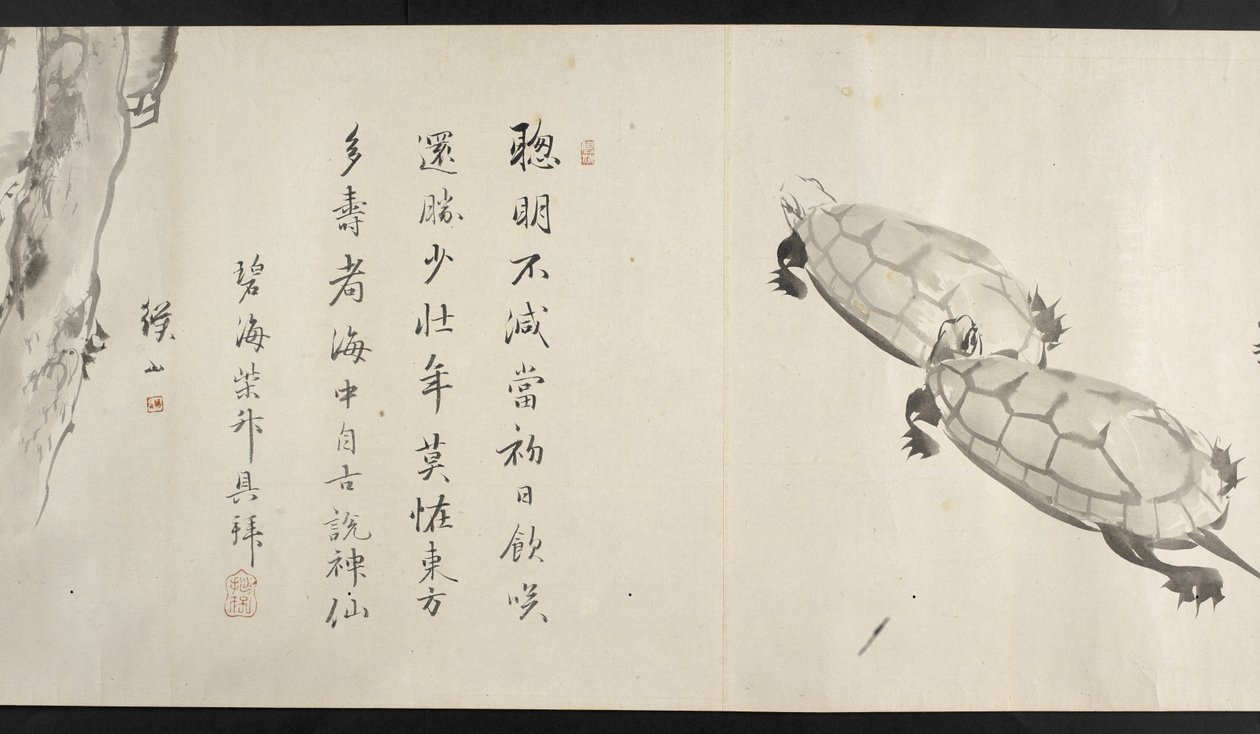 聰明不減當初日飲咲
還勝少壯年莫恠東方
多壽者海中自古說神仙
碧海柴升具拜
山